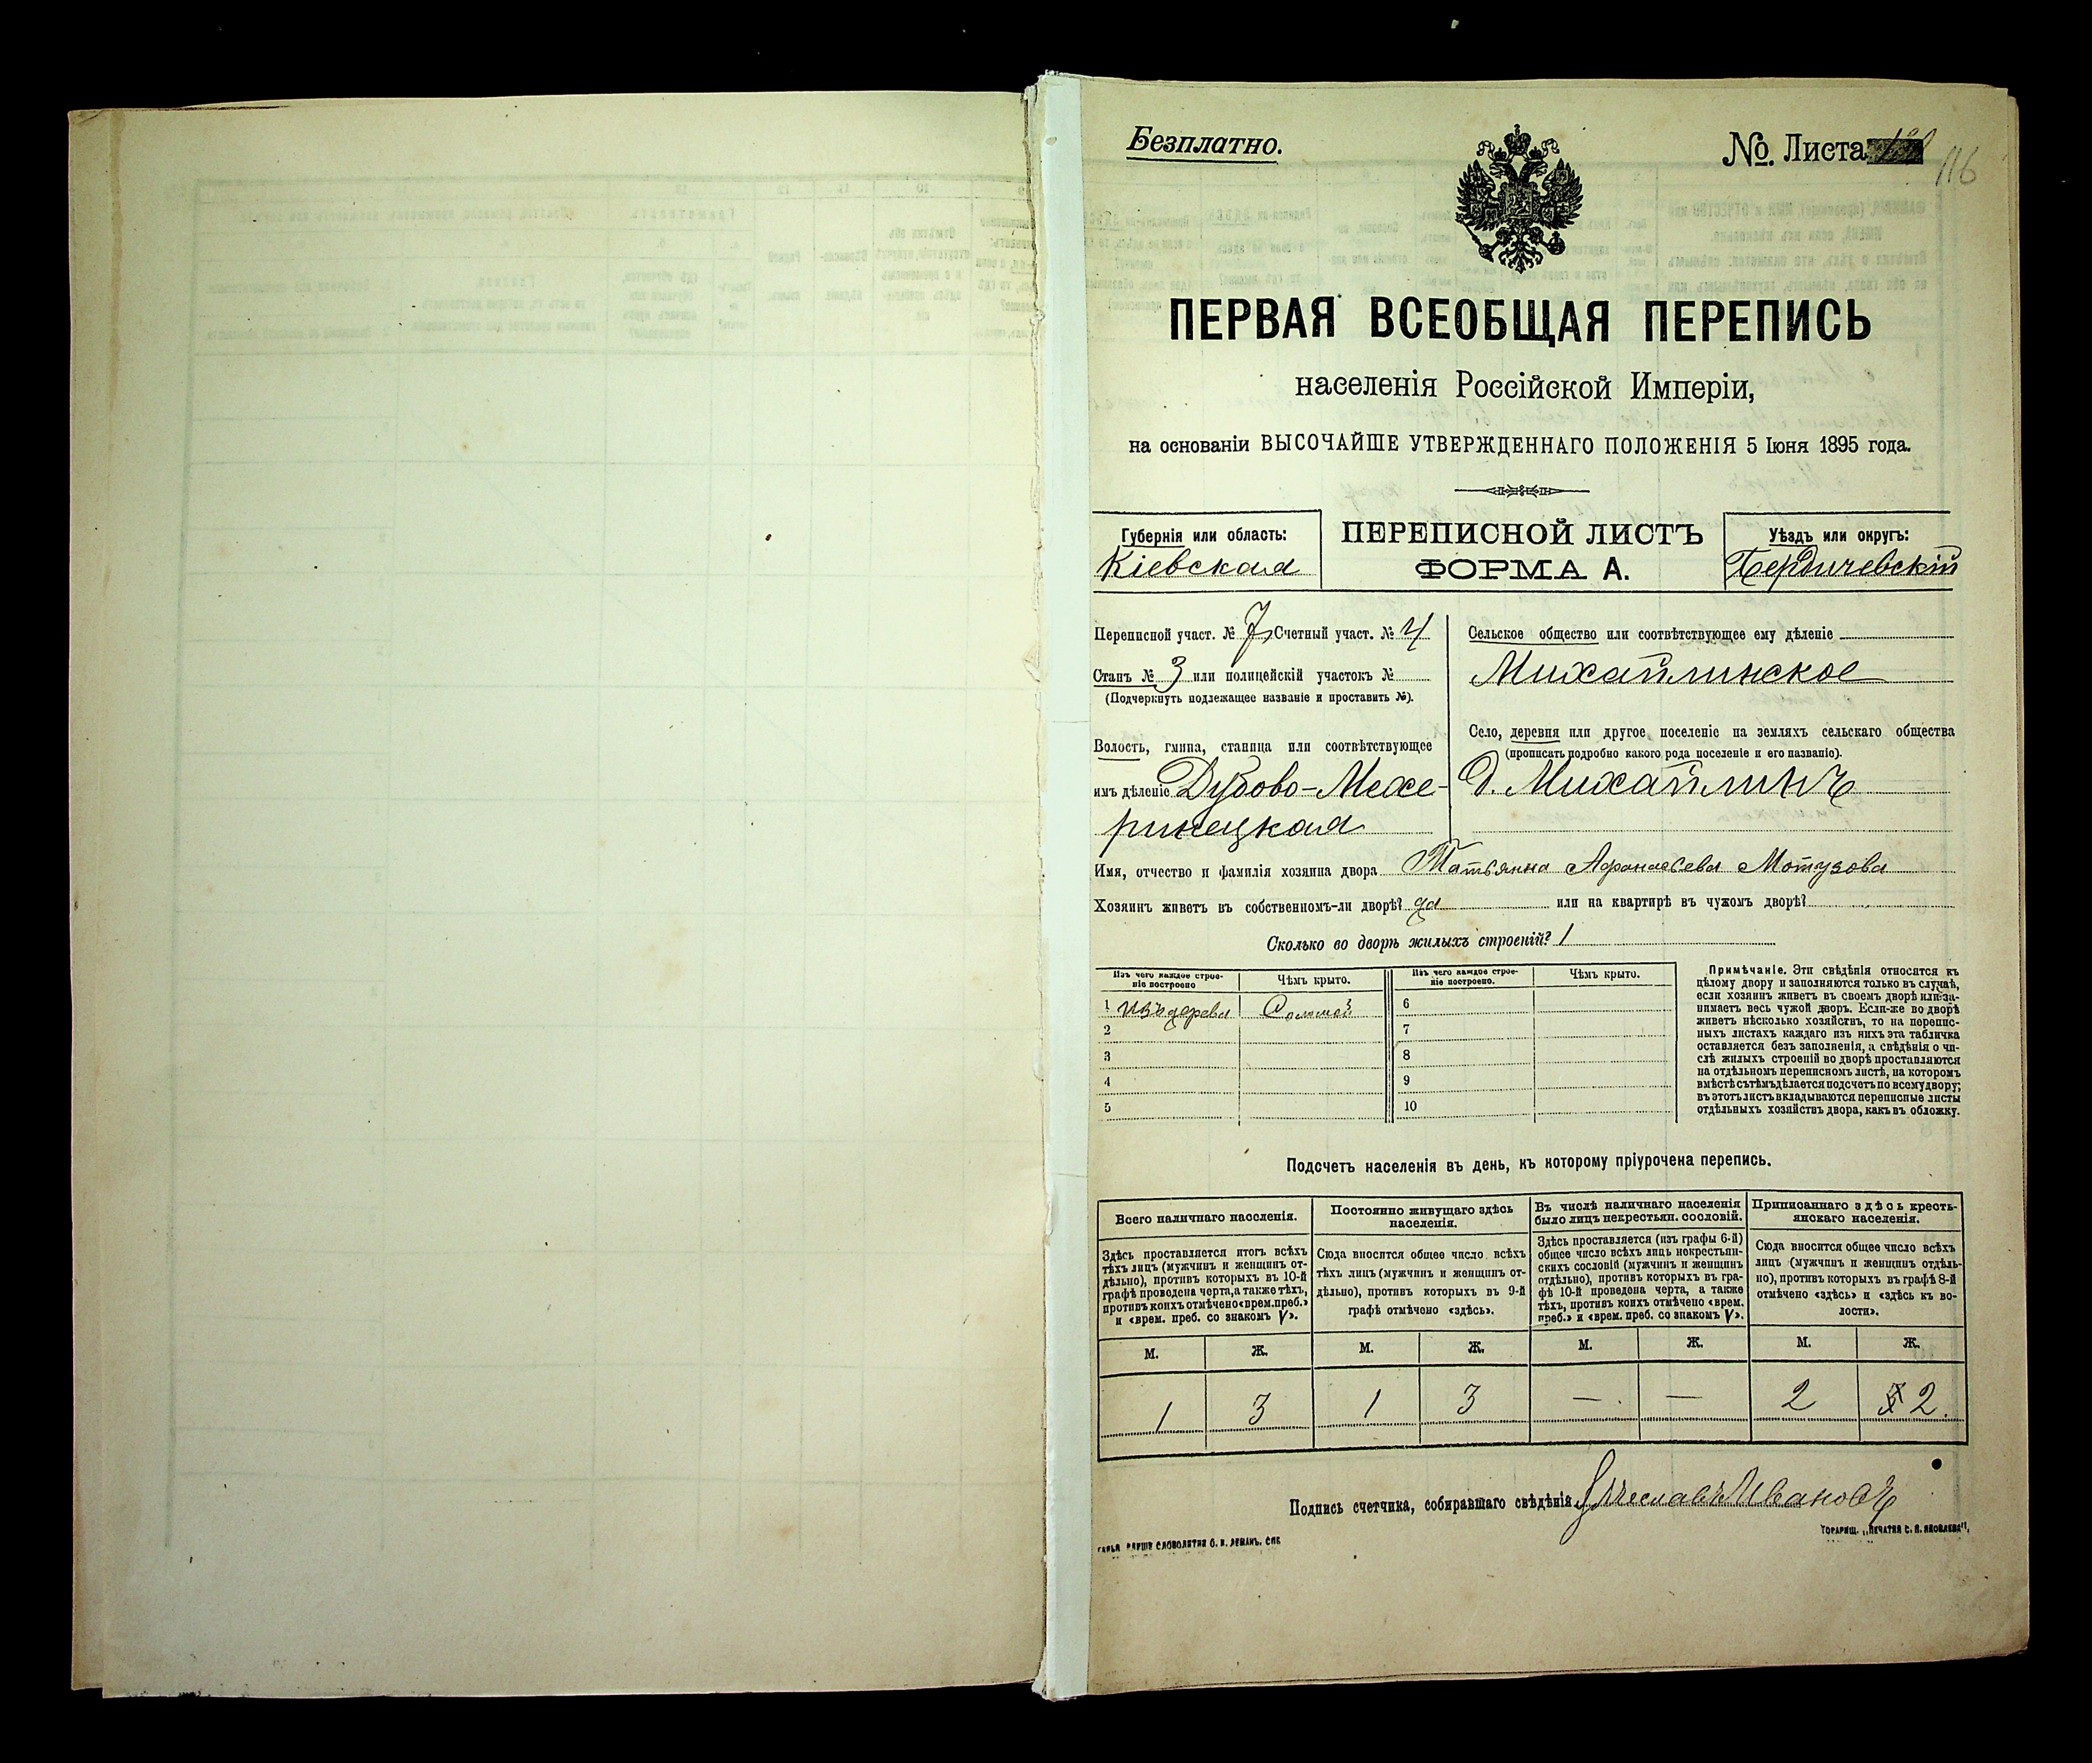 Безплатно.
№. Листа
116
ПЕРВАЯ ВСЕОБЩАЯ ПЕРЕПИСЬ
населенія Россійской Имперіи,
на основаніи ВЫСОЧАЙШЕ УТВЕРЖДЕННАГО ПОЛОЖЕНІЯ 5 Іюня 1895 года.
Губернія или область:
Кіевская
ПЕРЕПИСНОЙ ЛИСТЪ
ФОРМА А.
Уѣздъ или округъ:
Бердичевскій
Переписной участ. № 7, Счетный участ. № 4
Станъ № 3 или полицейскій участокъ №
(Подчеркнуть подлежащее названіе и проставить №).
Волость, гмина, станица или соотвѣтствующее
имъ дѣленіе Дубово-Меже-
ринецкая
Сельское общество или соотвѣтствующее ему дѣленіе
Михайлинское
Село, деревня или другое поселеніе на земляхъ сельскаго общества
(прописать подробно какого рода поселеніе и его названіе).
д. Михайлинъ
Имя, отчество и фамилія хозяина двора Татьянна Афанасьева Мотузова
Хозяинъ живетъ въ собственномъ-ли дворѣ? да или на квартирѣ въ чужомъ дворѣ?
Сколько во дворѣ жилыхъ строеній? 1
Изъ чего каждое строе-
ніе построено
Чѣмъ крыто.
Изъ чего каждое строе-
ніе построено.
Чѣмъ крыто.
1 изъ дерева Соломой 6
2 7
3 8
4 9
5 10
Примѣчаніе. Эти свѣдѣнія относятся къ
цѣлому двору и заполняются только въ случаѣ,
если хозяинъ живетъ въ своемъ дворѣ или за-
нимаетъ весь чужой дворъ. Если-же во дворѣ
живетъ нѣсколько хозяйствъ, то на перепис-
ныхъ листахъ каждаго изъ нихъ эта табличка
оставляется безъ заполненія, а свѣдѣнія о чи-
слѣ жилыхъ строеній во дворѣ проставляются
на отдѣльномъ переписномъ листѣ, на которомъ
вмѣстѣ съ тѣмъ дѣлается подсчетъ по всему двору;
въ этотъ листъ вкладываются переписные листы
отдѣльныхъ хозяйствъ двора, какъ въ обложку.
Подсчетъ населенія въ день, къ которому пріурочена перепись.
Всего наличнаго населенія.
Здѣсь проставляется итогъ всѣхъ
тѣхъ лицъ (мужчинъ и женщинъ от-
дѣльно), противъ которыхъ въ 10-й
графѣ проведена черта, а также тѣхъ,
противъ коихъ отмѣчено «врем. преб.»
и «врем. преб. со знакомъ V».
Постоянно живущаго здѣсь
населенія.
Сюда вносится общее число всѣхъ
тѣхъ лицъ (мужчинъ и женщинъ от-
дѣльно), противъ которыхъ въ 9-й
графѣ отмѣчено «здѣсь».
Въ числѣ наличнаго населенія
было лицъ некрестьян. сословій.
Здѣсь проставляется (изъ графы 6-й)
общее число всѣхъ лицъ некрестьян-
скихъ сословій (мужчинъ и женщинъ
отдѣльно), противъ которыхъ въ гра-
фѣ 10-й проведена черта, а также
тѣхъ, противъ коихъ отмѣчено «врем.
преб.» и «врем. преб. со знакомъ V».
Приписаннаго здѣсь кресть-
янскаго населенія.
Сюда вносится общее число всѣхъ
лицъ (мужчинъ и женщинъ отдѣль-
но), противъ которыхъ въ графѣ 8-й
отмѣчено «здѣсь» и «здѣсь къ во-
лости».
М. Ж. М. Ж. М. Ж. М. Ж.
1 3 1 3 — — 2 2.
Подпись счетчика, собиравшаго свѣдѣнія Ивановъ
СЛОВОЛИТНИ О. И. ЛЕМАНЪ, СПБ
ТОВАРИЩ. „ПЕЧАТНЯ С. П. ЯКОВЛЕВА",